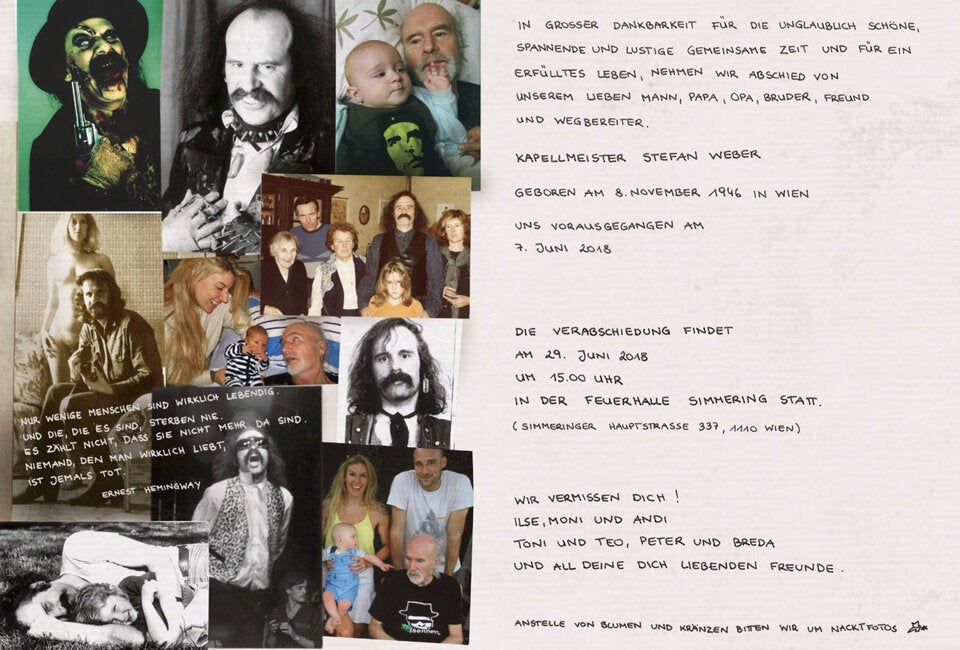 NUR WENIGE MENSCHEN SIND WIRKLICH LEBENDIG.
UND DIE, DIE ES SIND, STERBEN NIE.
ES ZÄHLT NICHT, DASS SIE NICHT MEHR DA SIND.
NIEMAND, DEN MAN WIRKLICH LIEBT,
IST JEMALS TOT.
ERNEST HEMINGWAY
IN GROSSER DANKBARKEIT FÜR DIE UNGLAUBLICH SCHÖNE,
SPANNENDE UND LUSTIGE GEMEINSAME ZEIT UND FÜR EIN
ERFÜLLTES LEBEN, NEHMEN WIR ABSCHIED VON
UNSEREM LIEBEN MANN, PAPA, OPA, BRUDER, FREUND
UND WEGBEREITER.
KAPELLMEISTER STEFAN WEBER
GEBOREN AM 8. NOVEMBER 1946 IN WIEN
UNS VORAUSGEGANGEN AM
7. JUNI 2018
DIE VERABSCHIEDUNG FINDET
AM 29. JUNI 2018
UM 15.00 UHR
IN DER FEUERHALLE SIMMERING STATT.
(SIMMERINGER HAUPTSTRASSE 337, 1110 WIEN)
WIR VERMISSEN DICH!
ILSE, MONI UND ANDI
TONI UND TEO, PETER UND BREDA
UND ALL DEINE DICH LIEBENDEN FREUNDE.
ANSTELLE VON BLUMEN UND KRÄNZEN BITTEN WIR UM NACKTFOTOS